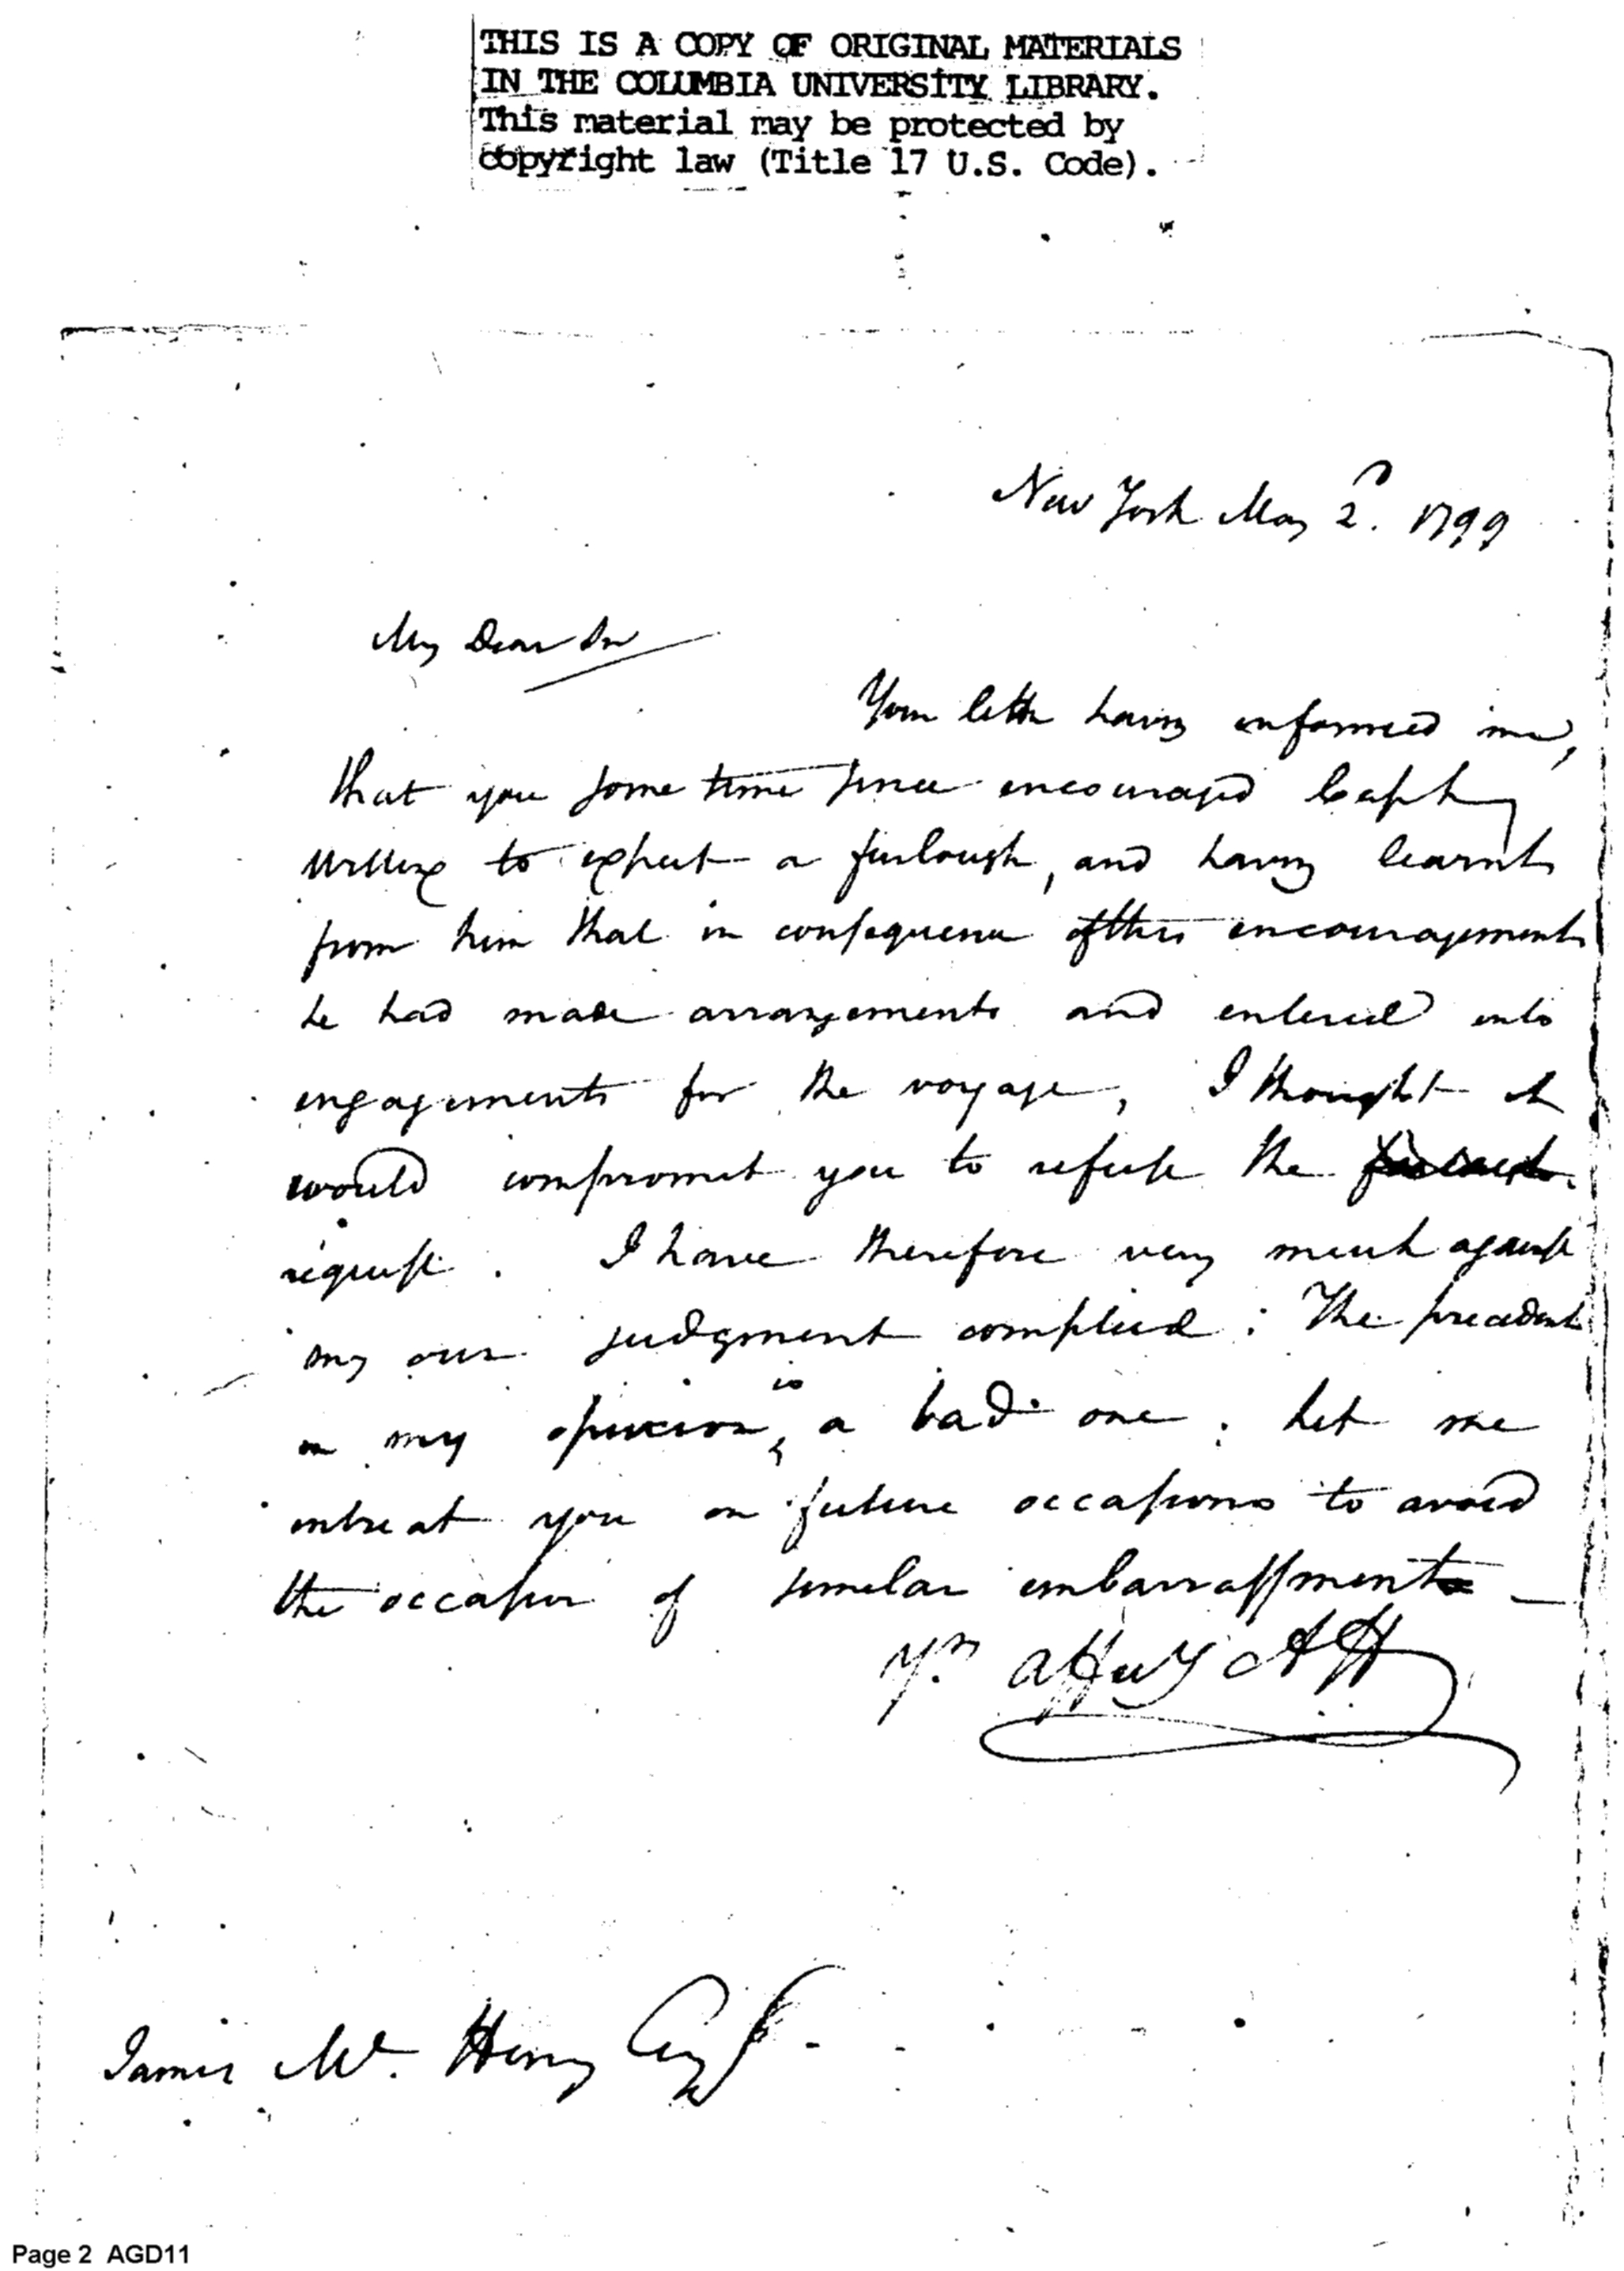 THIS IS A COPY OF ORIGINAL MATERIALS
IN THE COLUMBIA UNIVERSITY LIBRARY.
This material may be protected by
copyright law (Title 17 U.S. Code).
New York May 2d. 1799
My Dear Sir
Your letter having informed me,
that you some time since encouraged Capt
to expect a furlough, and having learnt
from him that in consequence of this encouragement
he had made arrangements and entered into
engagements for the voyage, I thought it
would compromit you to refuse the
request. I have therefore very much against
my own judgment complied: The precedent
in my opinion, is a bad one. Let me
intreat you on future occasions to avoid
the occasion of similar embarrassment
Yrs Affecly AH
James Mc. Henry Esqr
Page 2 AGD11